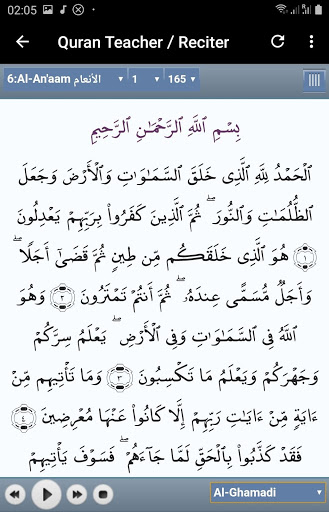 02:05
Quran Teacher / Reciter
6:Al-An'aam الأنعام 1 165
بِسْمِ ٱللَّهِ ٱلرَّحْمَـٰنِ ٱلرَّحِيمِ
ٱلْحَمْدُ لِلَّهِ ٱلَّذِى خَلَقَ ٱلسَّمَـٰوَٰتِ وَٱلْأَرْضَ وَجَعَلَ
ٱلظُّلُمَـٰتِ وَٱلنُّورَ ۖ ثُمَّ ٱلَّذِينَ كَفَرُوا۟ بِرَبِّهِمْ يَعْدِلُونَ
﴿١﴾ هُوَ ٱلَّذِى خَلَقَكُم مِّن طِينٍ ثُمَّ قَضَىٰٓ أَجَلًا ۖ
وَأَجَلٌ مُّسَمًّى عِندَهُۥ ۖ ثُمَّ أَنتُمْ تَمْتَرُونَ ﴿٢﴾ وَهُوَ
ٱللَّهُ فِى ٱلسَّمَـٰوَٰتِ وَفِى ٱلْأَرْضِ ۖ يَعْلَمُ سِرَّكُمْ
وَجَهْرَكُمْ وَيَعْلَمُ مَا تَكْسِبُونَ ﴿٣﴾ وَمَا تَأْتِيهِم مِّنْ
ءَايَةٍ مِّنْ ءَايَـٰتِ رَبِّهِمْ إِلَّا كَانُوا۟ عَنْهَا مُعْرِضِينَ ﴿٤﴾
فَقَدْ كَذَّبُوا۟ بِٱلْحَقِّ لَمَّا جَآءَهُمْ ۖ فَسَوْفَ يَأْتِيهِمْ
Al-Ghamadi